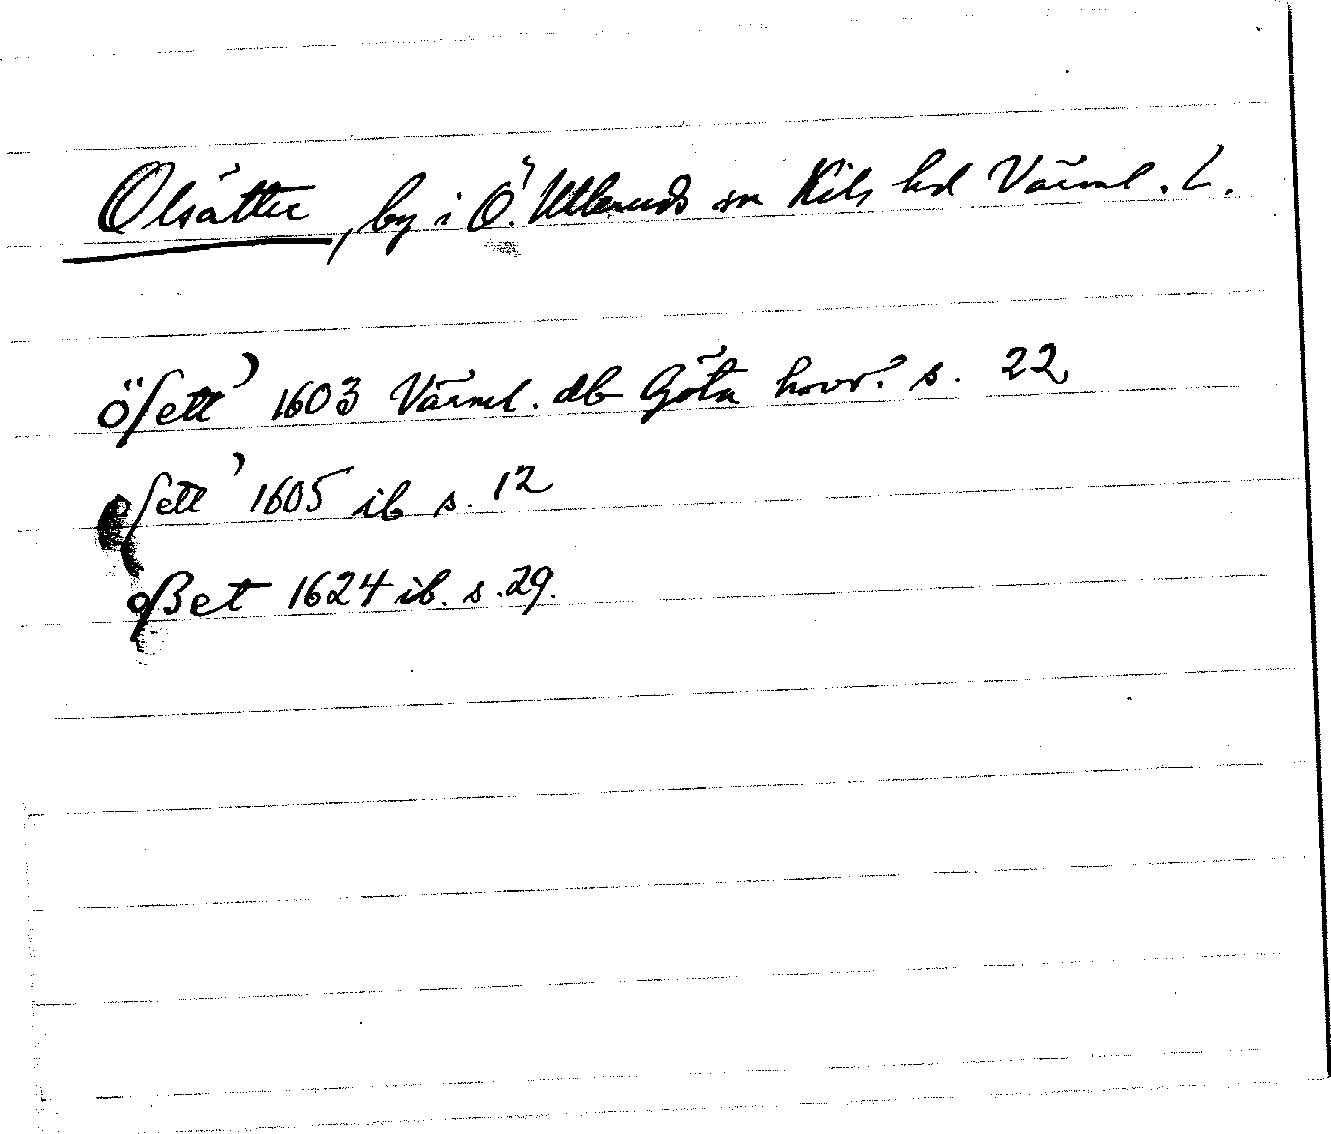 Olsätter, by i Ö. Ulleruds sn Kils hd Värml. L.
öſett' 1603 Värml. db Göta hovr. s. 22
oſett' 1605 ib s. 12
oßet 1624 ib. s. 29.